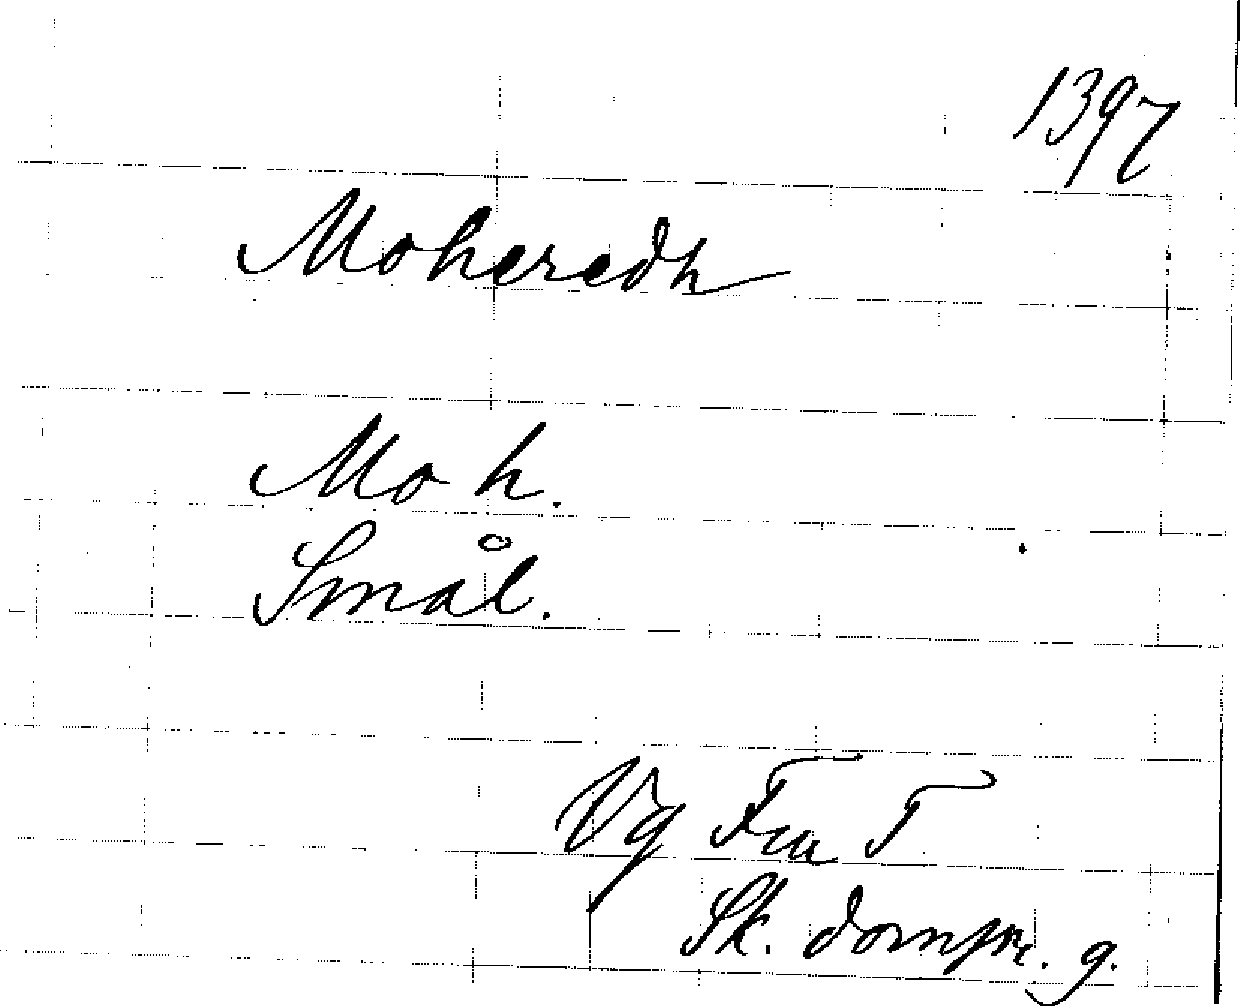 1397
Moheredh
Mo h.
Smål.
Vg Fra T
Sk. dompr. g.